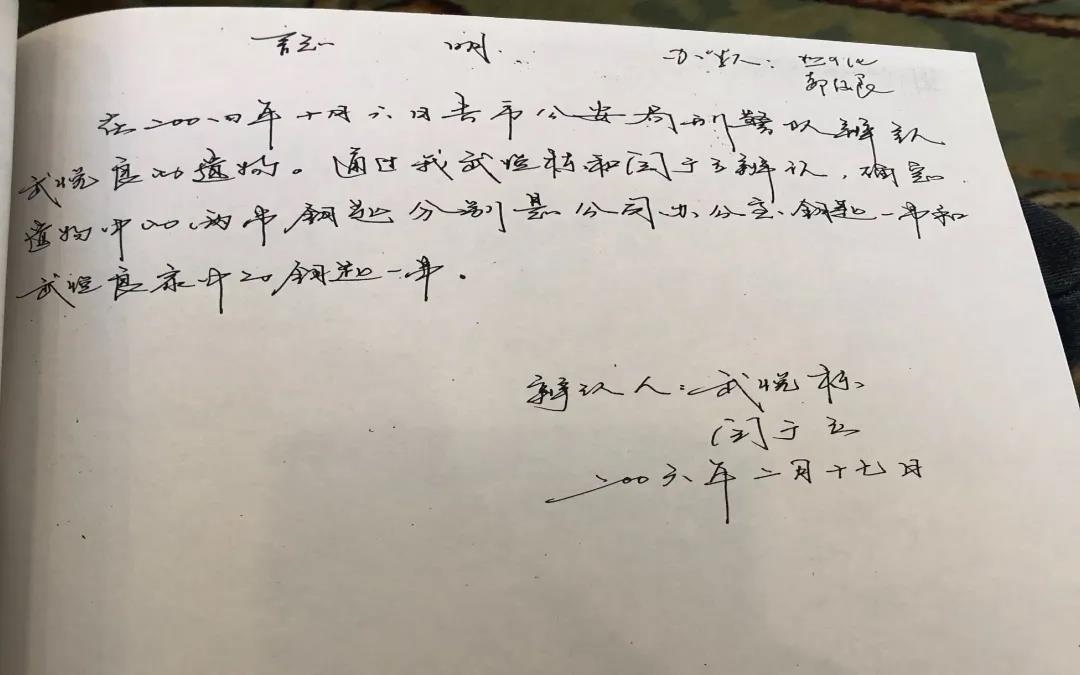 證 明
在二00四年十月六日去市公安局刑警队辨认
武悦良的遗物。通过我武悦栋和闫于立辨认，确认
遗物中的两串钥匙分别是公司办公室钥匙一串和
武悦良家中的钥匙一串。
辨认人：武悦栋
闫于立
二00六年二月十七日